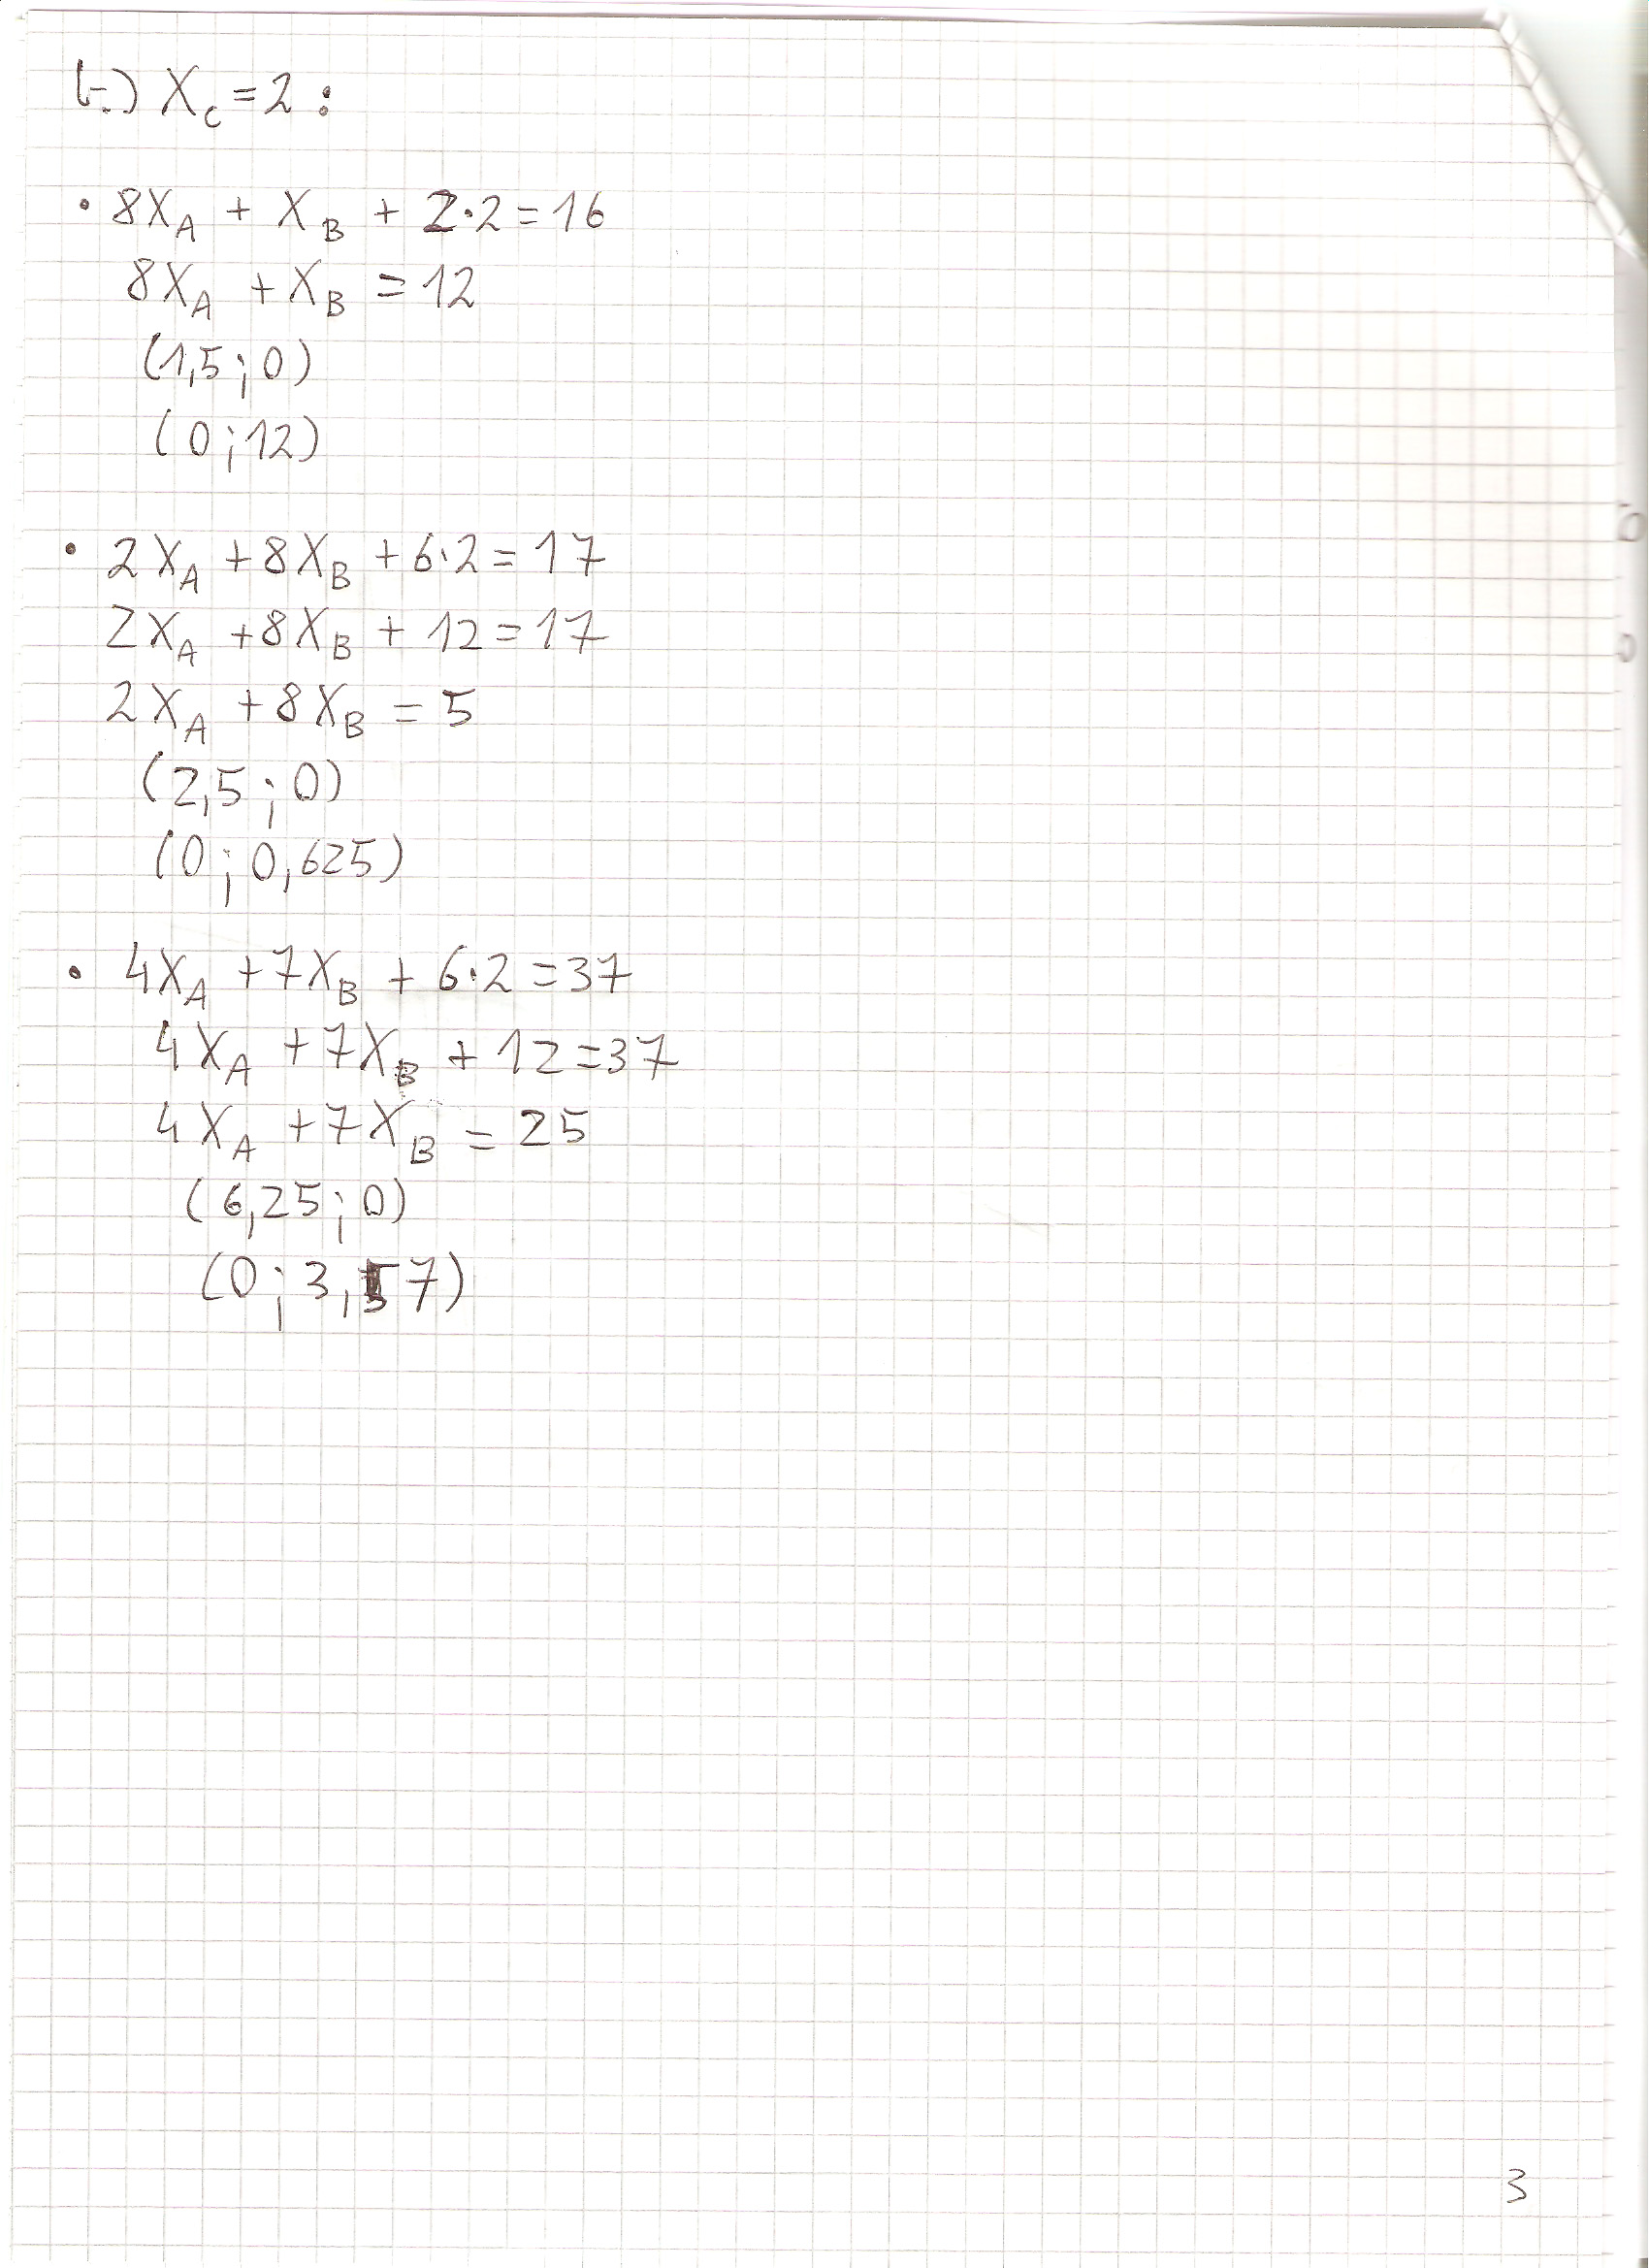 b.) X_C = 2 :
• 8X_A + X_B + 2·2 = 16
8X_A + X_B = 12
(1,5 ; 0)
(0 ; 12)
• 2X_A + 8X_B + 6·2 = 17
2X_A + 8X_B + 12 = 17
2X_A + 8X_B = 5
(2,5 ; 0)
(0 ; 0,625)
• 4X_A + 7X_B + 6·2 = 37
4X_A + 7X_B + 12 = 37
4X_A + 7X_B = 25
(6,25 ; 0)
(0 ; 3,57)
3